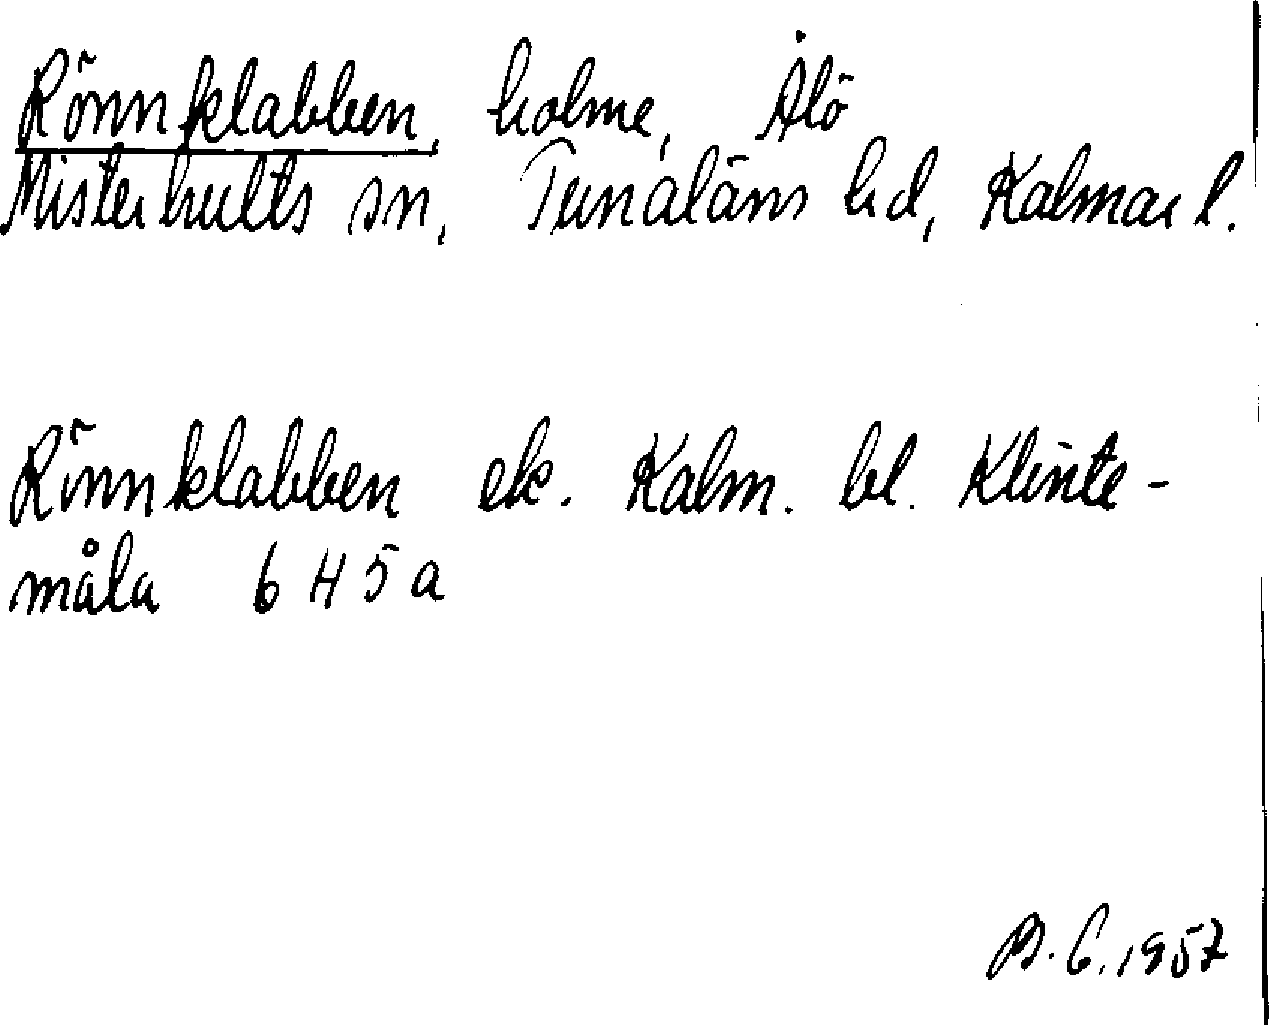 Rönnklabben, holme, Älö
Misterhults sn, Tunaläns hd, Kalmar l.
Rönnklabben ek. Kalm. bl. Klinte-
måla 6 H 5 a
B. C. 1957